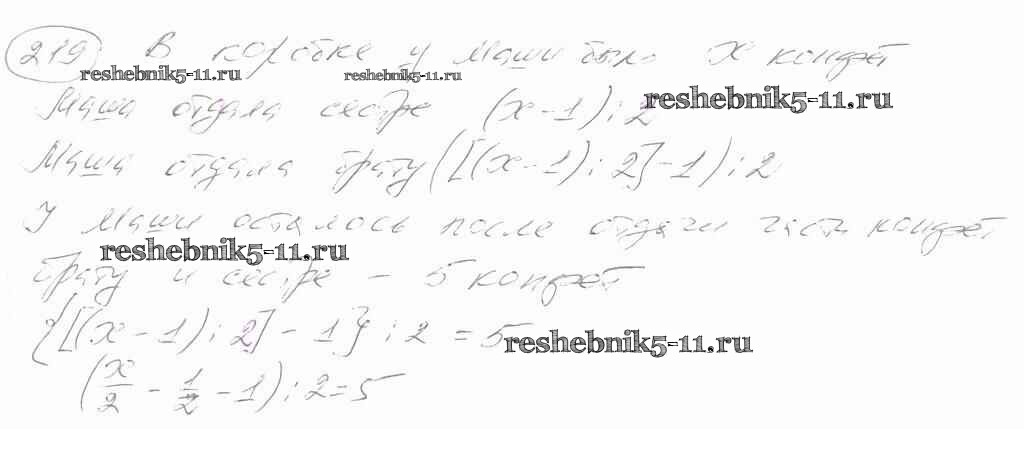 219 В коробке у Маши было x конфет
reshebnik5-11.ru reshebnik5-11.ru
Маша отдала сестре (x - 1) : 2
reshebnik5-11.ru
Маша отдала брату ([(x - 1) : 2] - 1) : 2
У Маши осталось после отдачи части конфет
reshebnik5-11.ru
брату и сестре - 5 конфет
{[(x - 1) : 2] - 1} : 2 = 5
reshebnik5-11.ru
(x/2 - 1/2 - 1) : 2 = 5